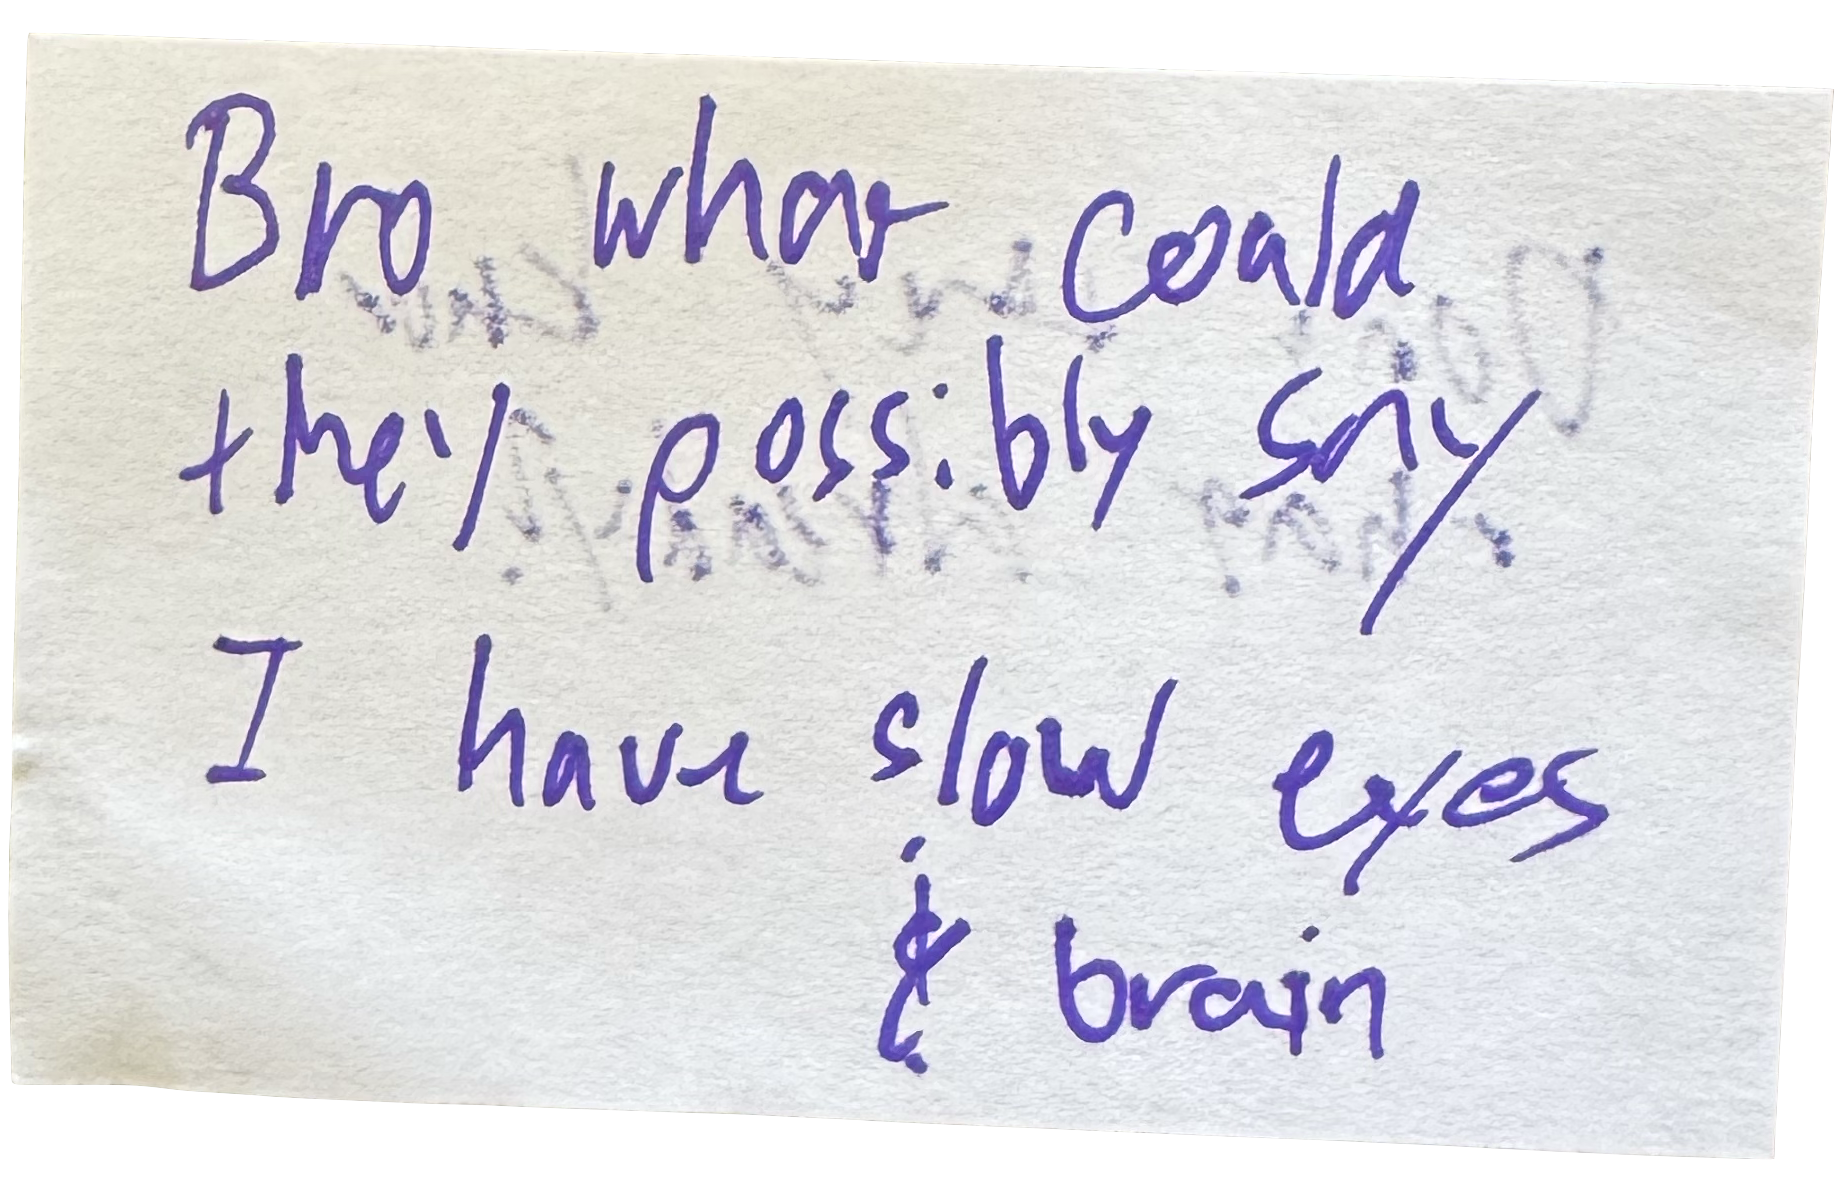 Bro what could
they possibly say
I have slow eyes
& brain